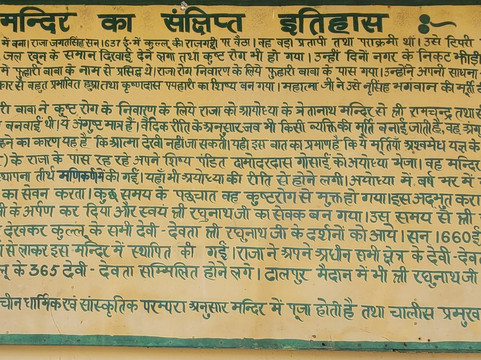 मन्दिर का संक्षिप्त इतिहास :-
में बना। राजा जगतसिंह सन् 1637 ई. में कुल्लू की राजगद्दी पर बैठा। वह बड़ा प्रतापी तथा पराक्रमी था। उसे टिपरी
जल खून के समान दिखाई देने लगा तथा कुष्ट रोग भी हो गया। उन्हीं दिनों नगर के निकट भीड़ी
में पुहारी बाबा के नाम से प्रसिद्ध थे। राजा रोग निवारण के लिये पुहारी बाबा के पास गया। उन्होंने अपनी साधना
कार से बहुत प्रभावित हुआ तथा कृष्णदास पयहारी का शिष्य बन गया। महात्मा जी ने उसे नृसिंह भगवान की मूर्ती
री बाबा ने कुष्ट रोग के निवारण के लिये राजा को अयोध्या के त्रेतानाथ मन्दिर से श्री रामचन्द्र तथा
बनवाई थी। ये अंगुष्ट मात्र हैं। वैदिक रीति के अनुसार जब भी किसी व्यक्ति की मूर्ति बनाई जाती है, वह
हने का कारण यह है कि आत्मा देखी नहीं जा सकती। यही इस बात का प्रमाण है कि ये मूर्तियाँ अश्वमेध यज्ञ के
के राजा के पास रह रहे अपने शिष्य पंडित दामोदरदास गोसाई को अयोध्या भेजा। वह मन्दिर
स्थापना तीर्थ मणिकर्ण में की गई। यहाँ भी अयोध्या की रीति से होने लगी। अयोध्या में वर्ष भर में
का सेवन करता। कुछ समय के पश्चात वह कुष्टरोग से मुक्त हो गया। इस अदभुत करा
जी के अर्पण कर दिया और स्वयं श्री रघुनाथ जी का सेवक बन गया। उस समय से श्री
देखकर कुल्लू के सभी देवी - देवता श्री रघुनाथ जी के दर्शनों को आये। सन् 1660 ई
से लाकर इस मन्दिर में स्थापित की गई। राजा ने अपने अधीन सभी क्षेत्र के देवी - देवता
के 365 देवी - देवता सम्मिलित होने लगे। ढालपुर मैदान में भी श्री रघुनाथ जी
चीन धार्मिक एवं सांस्कृतिक परम्परा अनुसार मन्दिर में पूजा होती है तथा चालीस प्रमुख